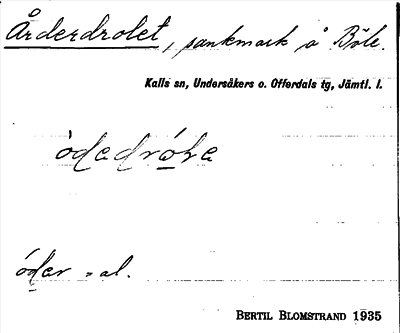 Årderdrolet, sankmark å Böle.
Kalls sn, Undersåkers o. Offerdals tg, Jämtl. l.
òdedróła
óder = al.
BERTIL BLOMSTRAND 1935